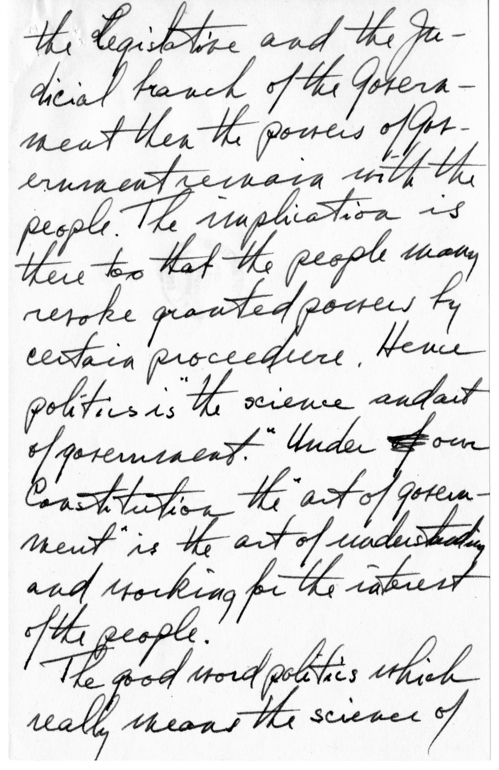 the Legislative and the Ju-
dicial branch of the Govern-
ment then the powers of Gov-
ernment remain with the
people. The implication is
there too that the people many
revoke granted powers by
certain proceedure. Hence
politics is "the science and art
of government." Under our
Constitution the "art of govern-
ment" is the art of understanding
and working for the interest
of the people.
The good word politics which
really means the science of